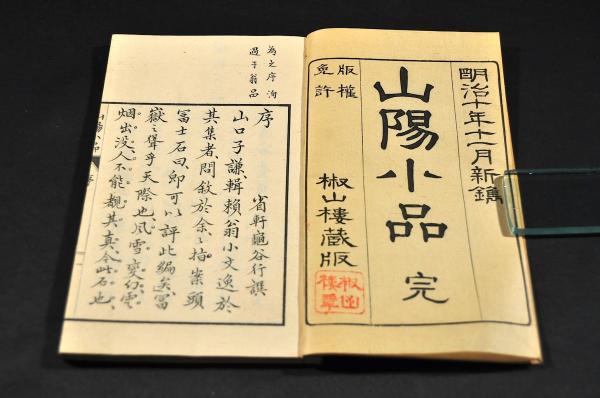 明治十年十一月新鐫
山陽小品 完
椒山樓蔵版
版權
免許
序
省軒龜谷行譔
山口子謙輯賴翁小文逸於
其集者問敘於余余指案頭
冨士石曰卽可以評此編矣冨
嶽之聳乎天際也風雪變幻雲
烟出没人不能覩其真今此石也
為之序洵
過于翁品